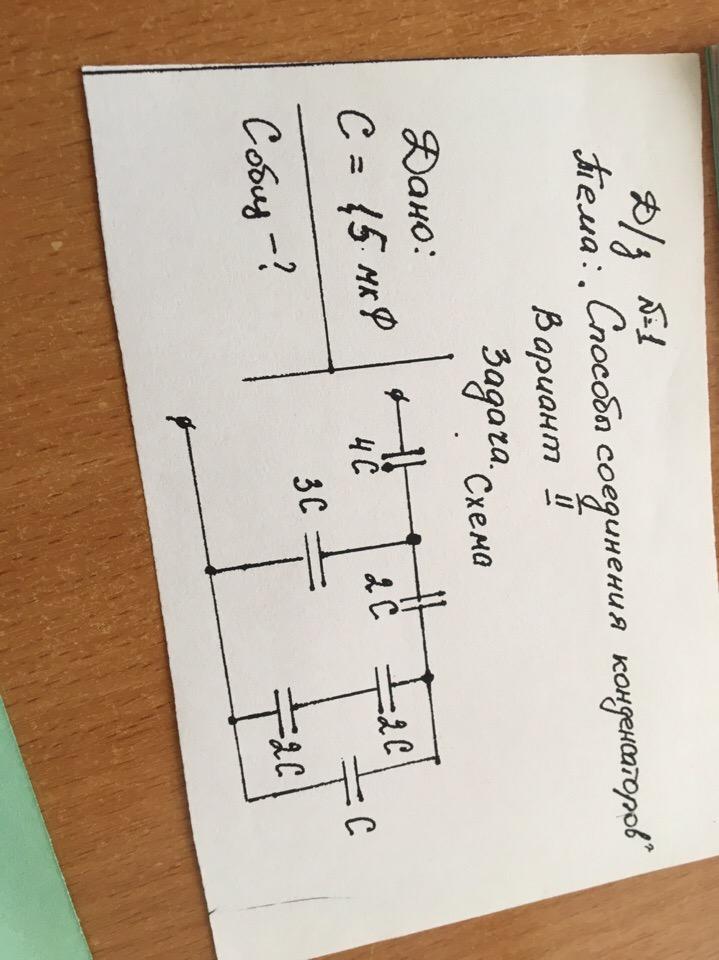 Д/з №1
Тема: „Способы соединения конденсаторов"
Вариант II
Задача. Схема
Дано:
C = 15 мкФ
Cобщ - ?
4C
2C
3C
2C
2C
C